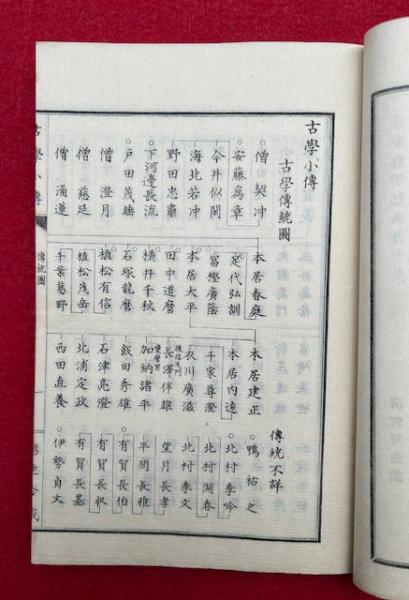 古學小傳
古學傳統圖
僧 契冲
安藤爲章
今井似閑
海北若冲
野田忠肅
下河邊長流
戸田茂睡
僧 澄月
僧 慈延
僧 涌蓮
本居春庭
足代弘訓
富樫廣蔭
本居大平
田中道麿
横井千秋
石塚龍麿
植松有信
植松茂岳
千葉葛野
本居建正
本居内遠
千家尊澄
衣川廣滋
長澤伴雄
加納諸平
飯田秀雄
石津亮澄
北浦定政
西田直養
傳統不詳
鴨 祐之
北村季吟
北村湖春
北村季文
望月長孝
平間長雅
有賀長伯
有賀長収
有賀長基
伊勢貞丈
古學小傳
傳統圖
一